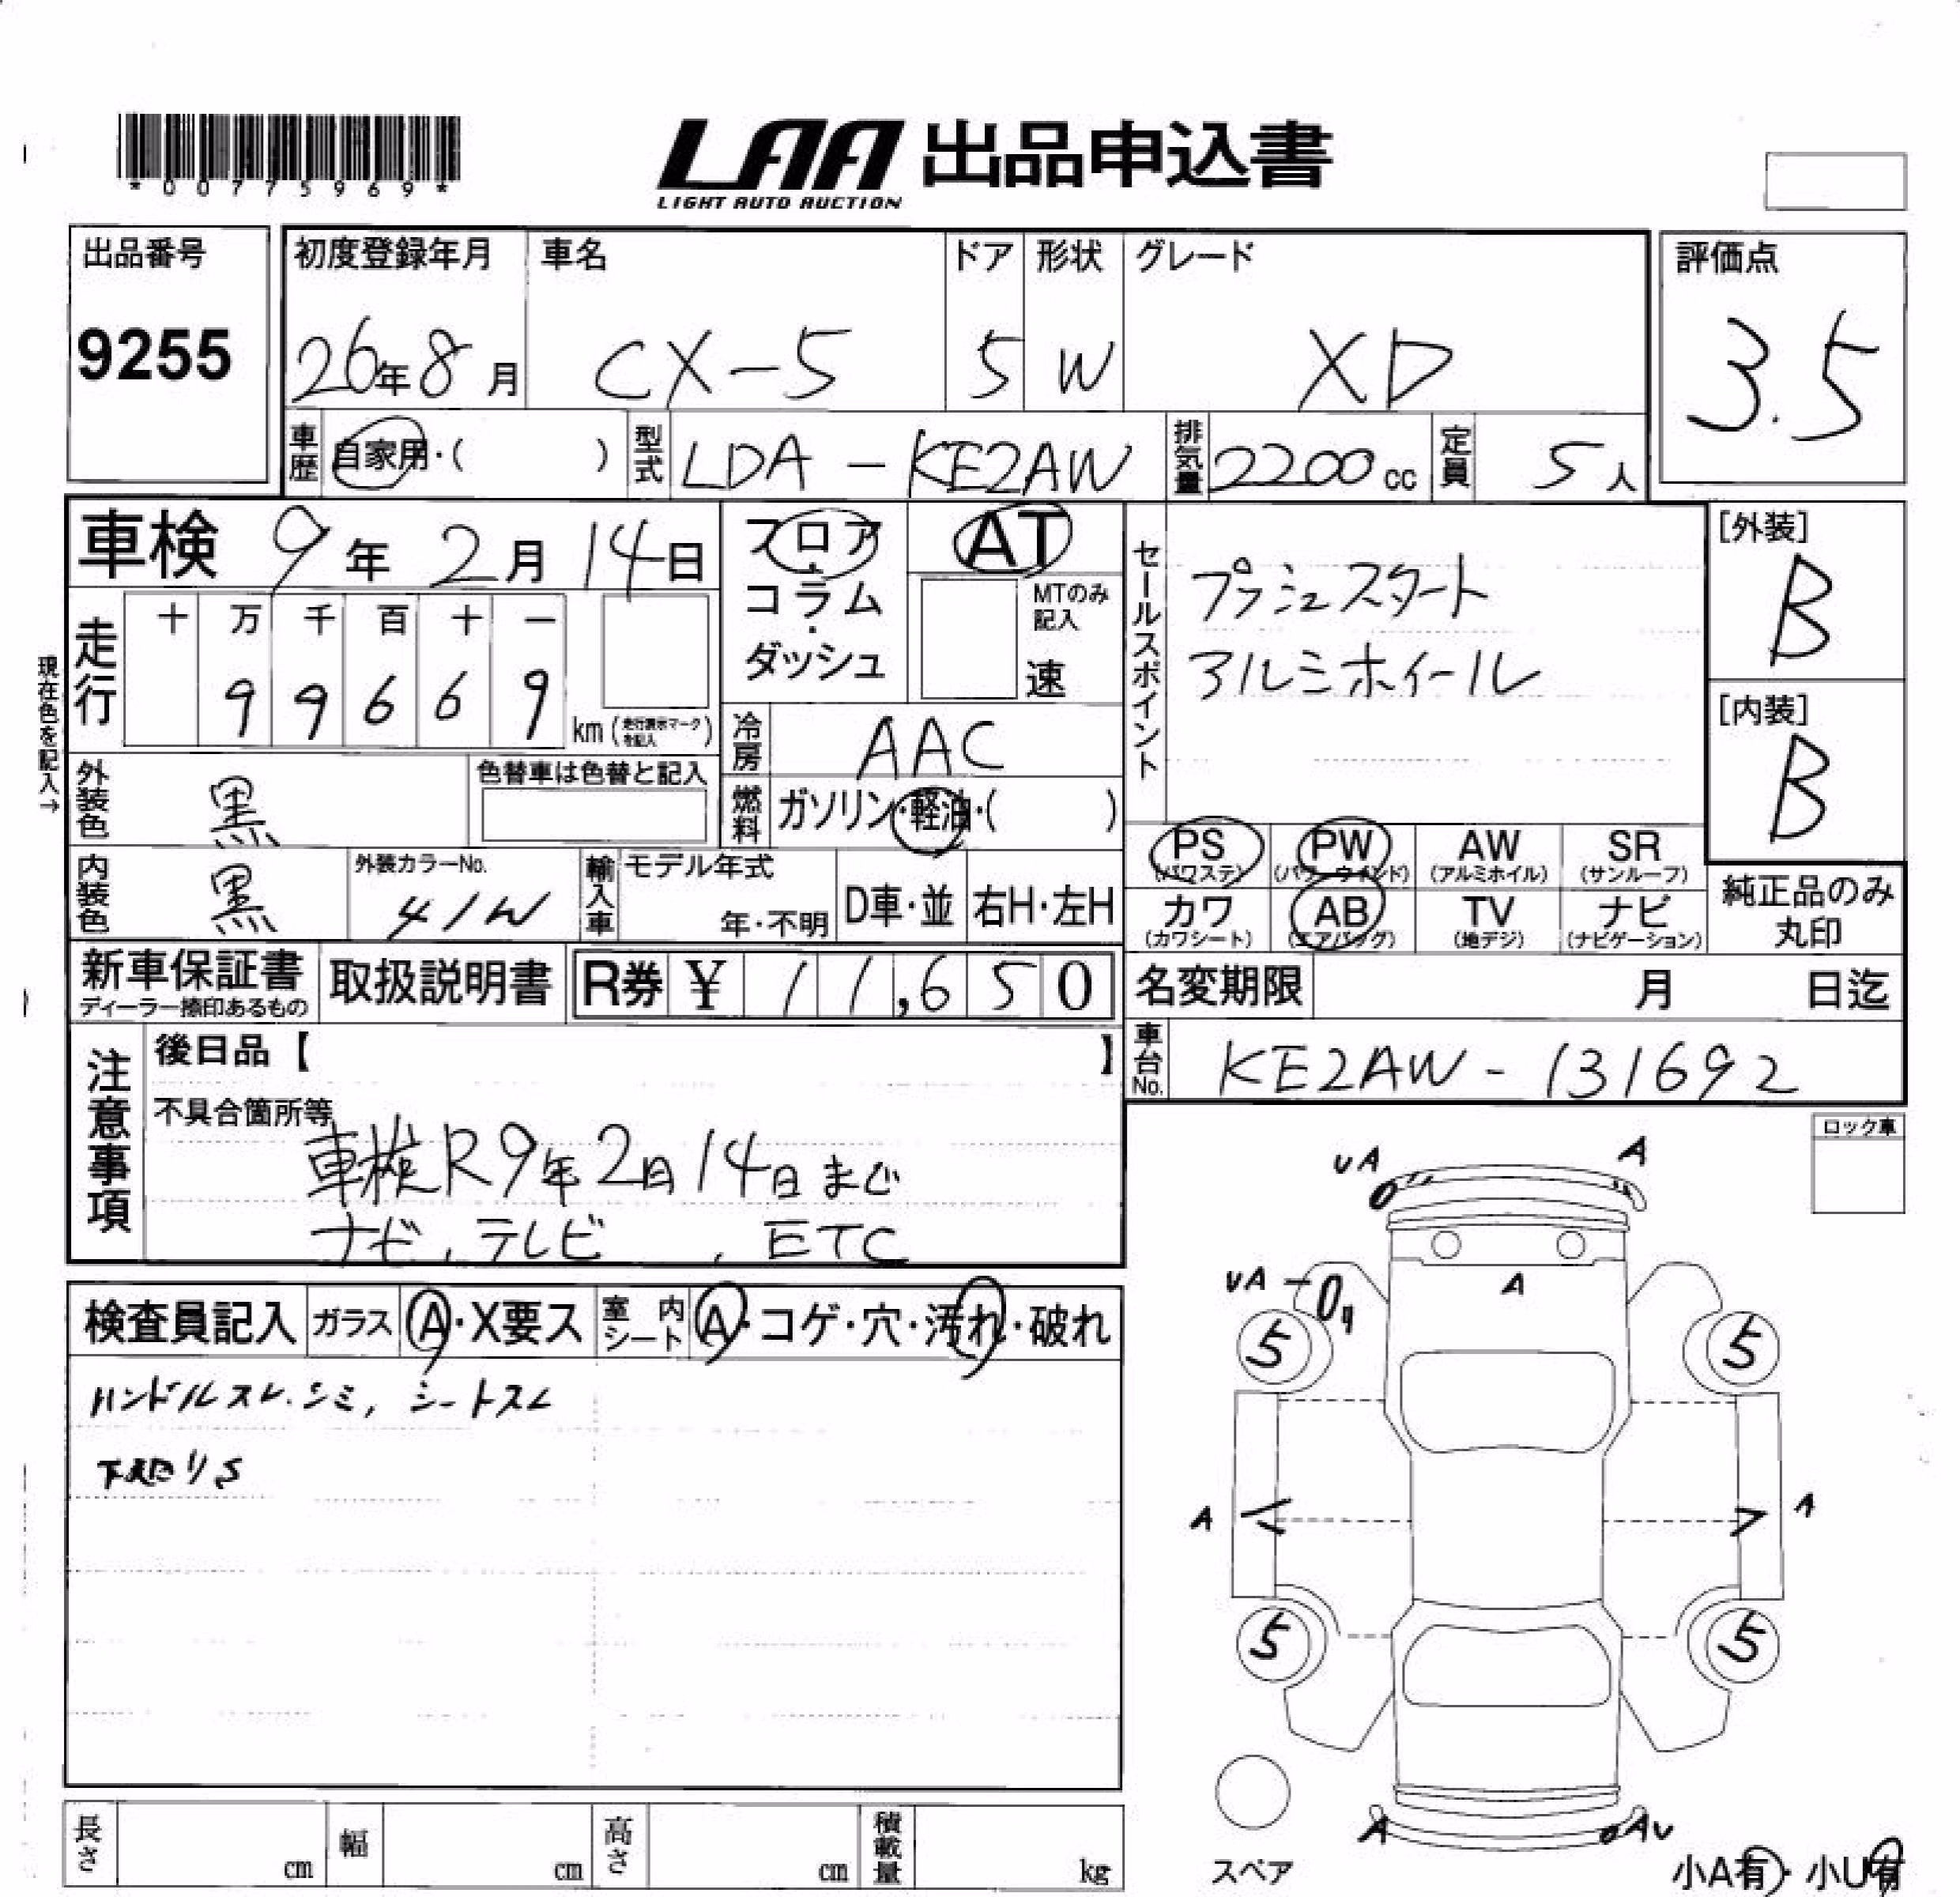 *00775969*
LAA 出品申込書
LIGHT AUTO AUCTION
出品番号
9255
初度登録年月 車名 ドア 形状 グレード
26年8月 CX-5 5 W XD
評価点
3.5
車歴 自家用・( ) 型式 LDA-KE2AW 排気量 2200cc 定員 5人
車検 9年2月14日
フロア・コラム・ダッシュ
AT
MTのみ記入
速
セールスポイント
プッシュスタート
アルミホイール
[外装]
B
[内装]
B
現在色を記入→
走行 十 万 千 百 十 一
9 9 6 6 9 km (走行表示マークを記入)
冷房 AAC
外装色 黒 色替車は色替と記入
燃料 ガソリン・軽油・( )
内装色 黒 外装カラーNo. 41W
輸入車 モデル年式 年・不明 D車・並 右H・左H
PS (パワステ) PW (パワーウインド) AW (アルミホイル) SR (サンルーフ)
カワ (カワシート) AB (エアバッグ) TV (地デジ) ナビ (ナビゲーション)
純正品のみ丸印
新車保証書 ディーラー捺印あるもの 取扱説明書 R券 ¥ 11,650
名変期限 月 日迄
車台No. KE2AW-131692
注意事項
後日品【 】
不具合箇所等
車検R9年2月14日まで
ナビ、テレビ、ETC
ロック車
検査員記入 ガラス A・X要ス 室内シート A・コゲ・穴・汚れ・破れ
ハンドルスレ.シミ, シートスレ
下廻りS
UA A
UA A
5 5
A A
5 5
A AU
スペア
小A有・小U有
長さ cm 幅 cm 高さ cm 積載量 kg